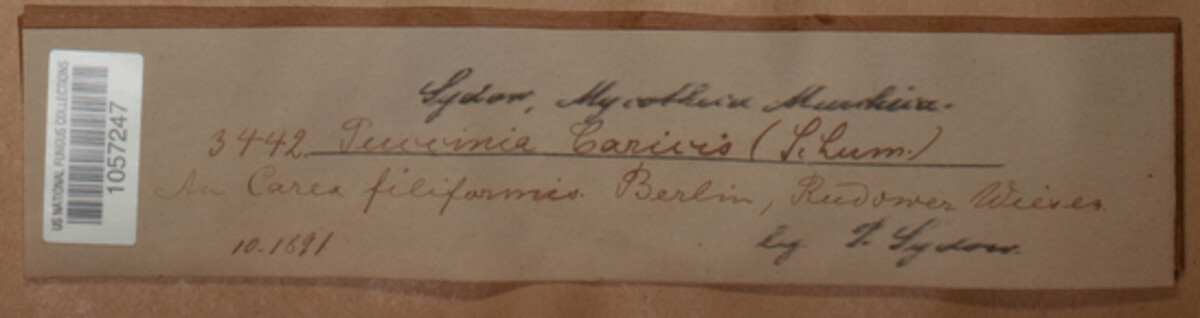 US NATIONAL FUNGUS COLLECTIONS
1057247
Sydow, Mycotheca Marchica.
3442. Puccinia Caricis (Schum.)
An Carex filiformis. Berlin, Rudower Wiesen
10.1891
leg P. Sydow.